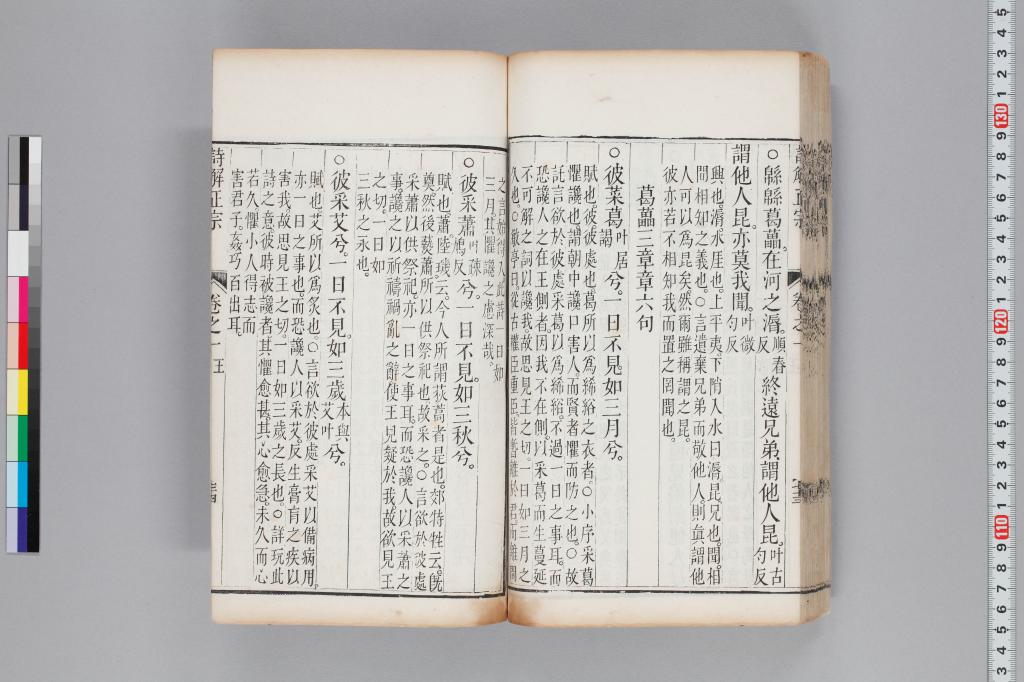 ○緜緜葛藟在河之漘順春反終遠兄弟謂他人昆叶古勻反
謂他人昆亦莫我聞叶微勻反
興也漘水厓也上平夷下陗入水曰漘昆兄也聞相
聞相知之義也○言遺棄兄弟而敬他人則眞謂他
人可以爲昆矣然爾雖稱謂之昆
彼亦若不相知我而置之罔聞也
葛藟三章章六句
○彼菜葛叶居謁兮一日不見如三月兮
賦也彼彼處也葛所以爲絺綌之衣者○小序采葛
懼讒也謂朝中讒口害人而賢者懼而防之也○故
託言欲於彼處采葛以爲絺綌不過一日之事耳而
恐讒人之在王側者因我不在側以采葛而生蔓延
不可解之詞以讒我故思見王之切一日如三月之
久也
三月其懼讒之慮深哉
○彼采蕭叶疎鳩反兮一日不見如三秋兮
賦也蕭陸璣云今人所謂荻蒿者是也郊特牲云旣
奠然後爇蕭所以供祭祀也故采之○言欲於彼處
采蕭以供祭祀亦一日之事耳而恐讒人以采蕭之
事讒之以祈禱禍亂之辭使王見疑於我故欲見王
之切一日如
三秋之永也
○彼采艾兮一日不見如三歲本與艾叶兮
賦也艾所以爲炙也○言欲於彼處采艾以備病用
亦一日之事也而恐讒人以采艾反生膏肓之疾以
害我故思見王之切一日如三歲之長也○詳玩此
詩之意彼時被讒者其懼愈甚其心愈急未久而心
若久懼小人得志而
害君子姦巧百出耳
詩解正宗 卷之一 王